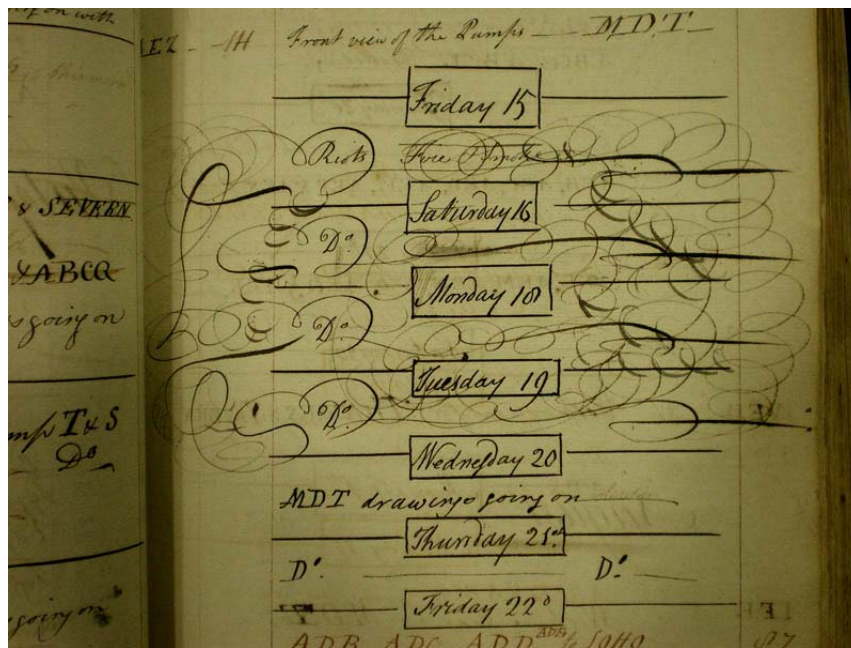 on with
& SEVERN
& ABCQ
going on
T & S
Do
going on
Front view of the Pumps MDT
Friday 15
Riots
Saturday 16
Do.
Monday 18
Do.
Tuesday 19
Do.
Wednesday 20
MDT drawings going on
Thursday 21st
Do. Do.
Friday 22d
ADB ADC ADD